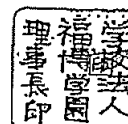 学校法人
福博学園
理事長印